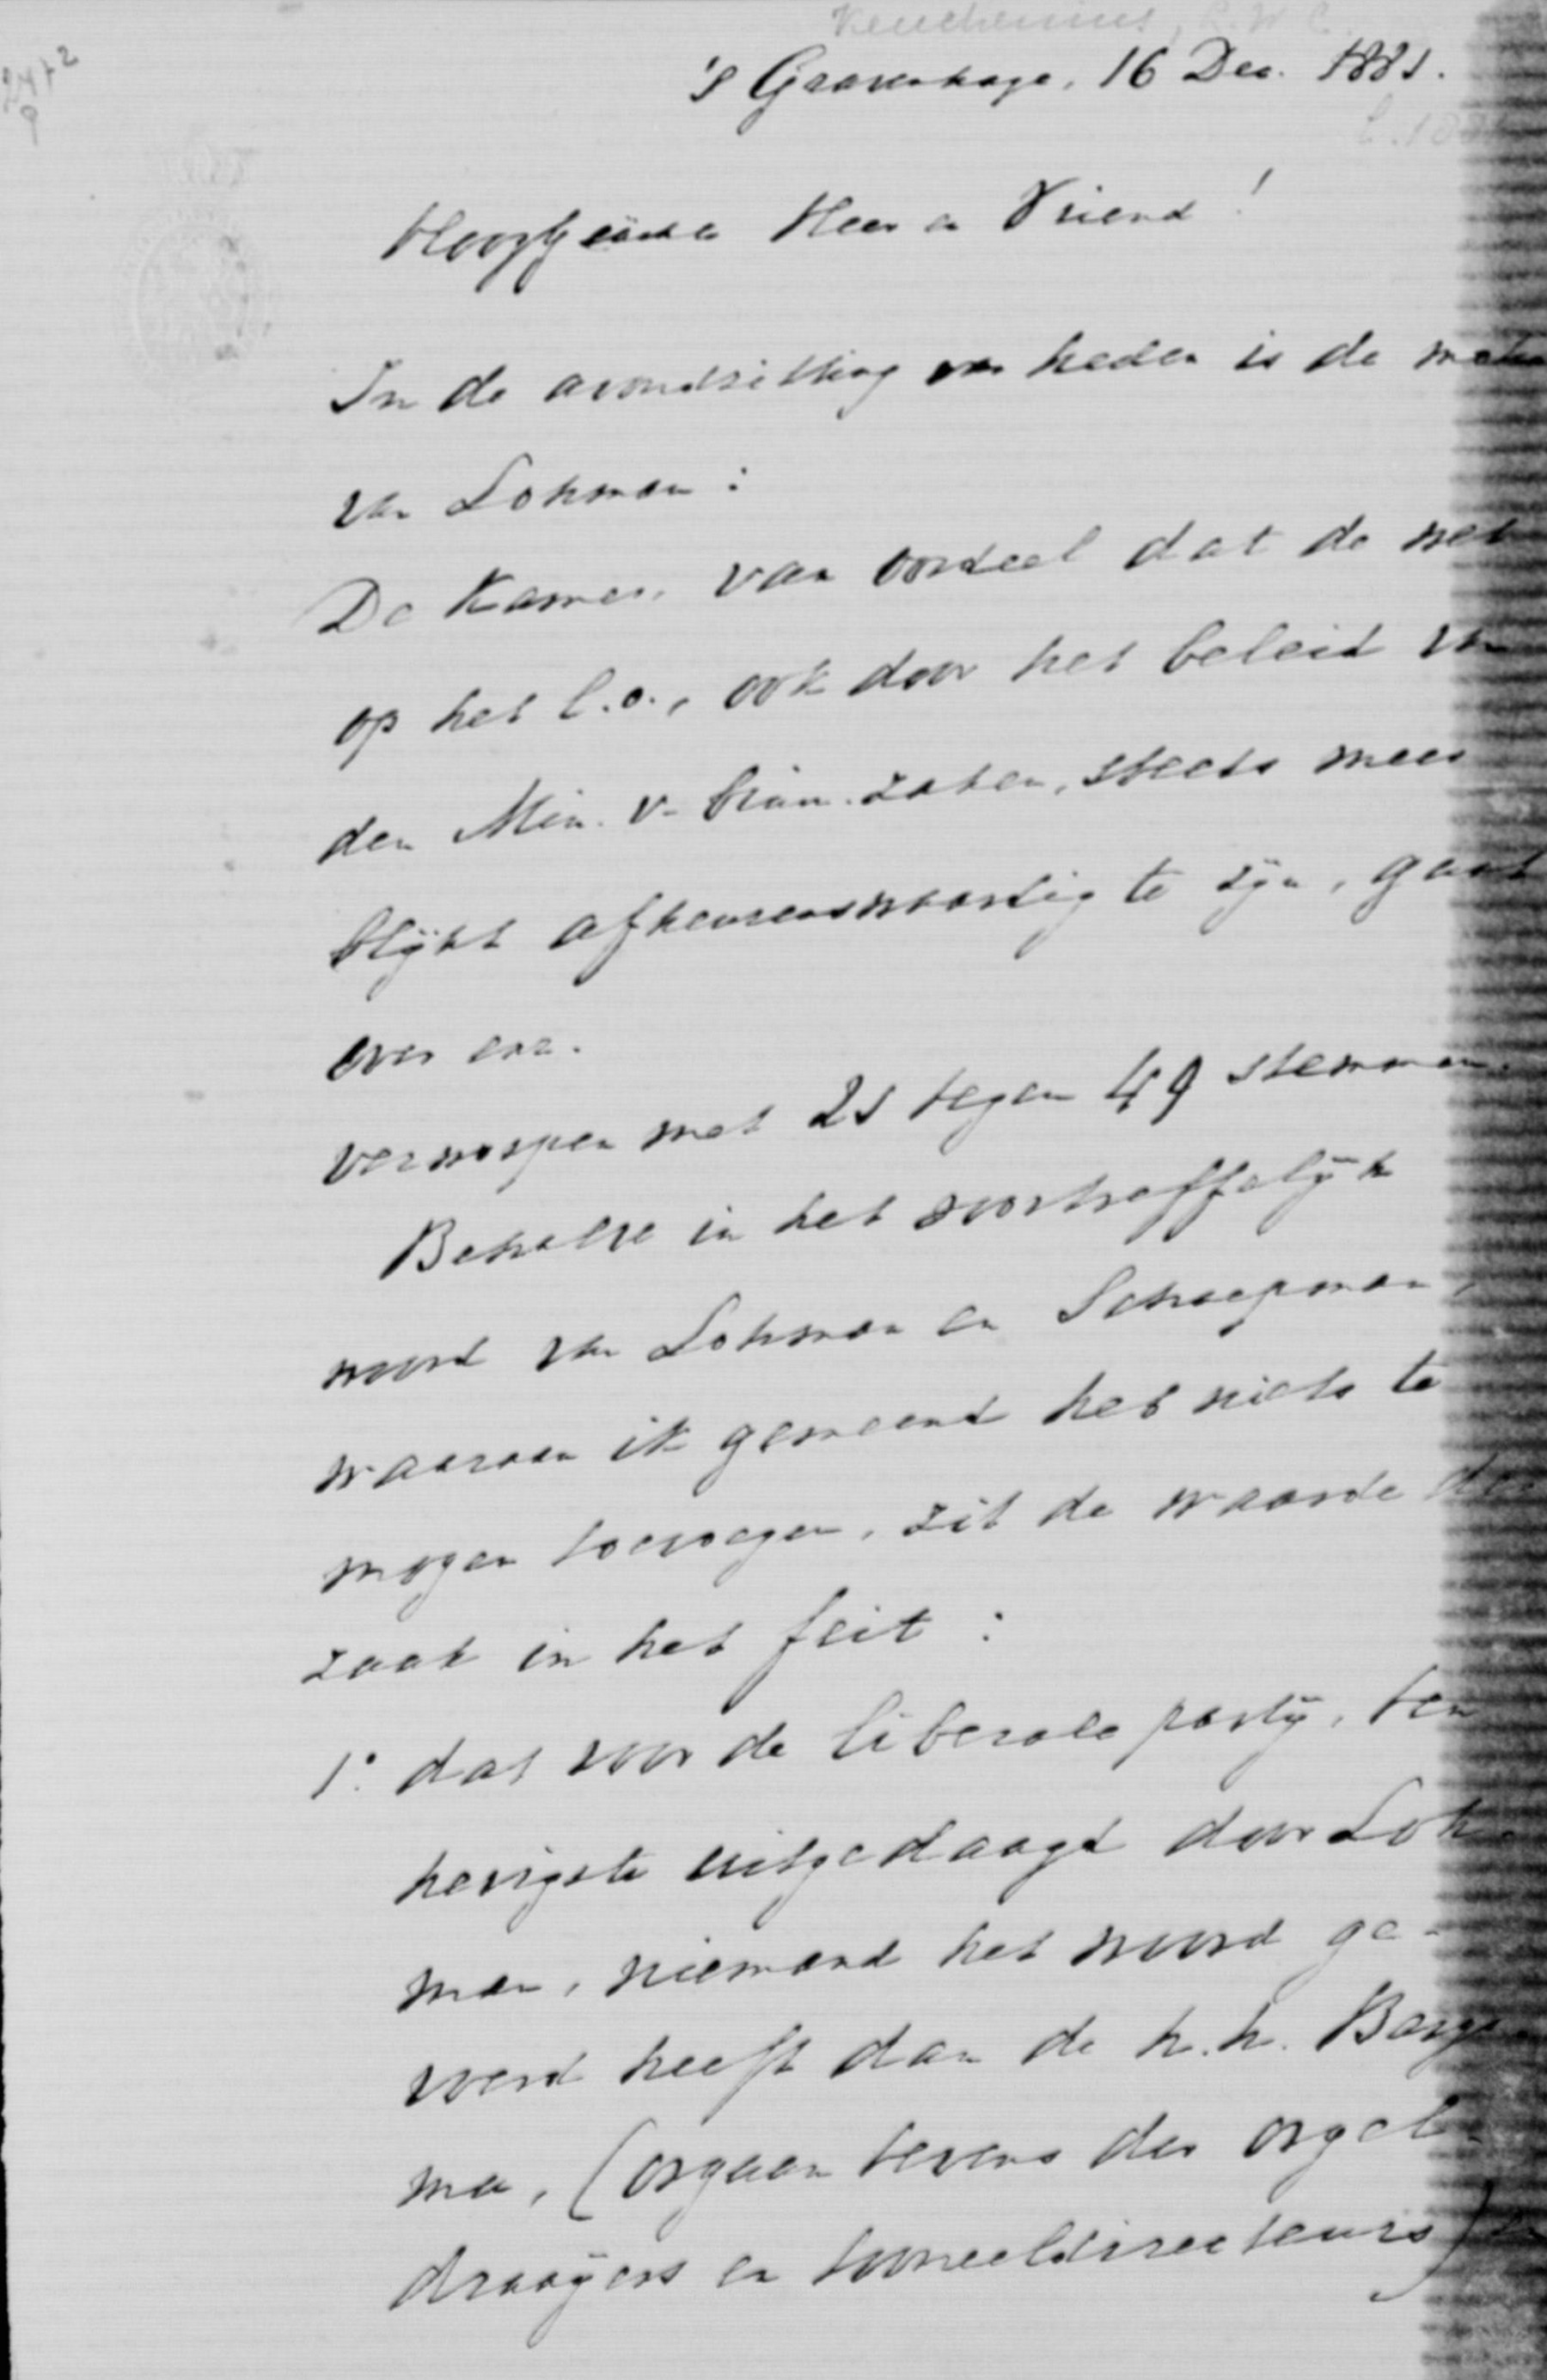 Keuchenius, L.W.C.
's Gravenhage, 16 Dec. 1881.
HoogGeachte Heer en Vriend!
In de avondzitting van heden is de motie
van Lohman:
De Kamer, van oordeel dat de wet
op het l.o., ook door het beleid van
den Min. v. binn. zaken, steeds meer
blijkt afkeurenswaardig te zijn, gaat
over enz.
verworpen met 21 tegen 49 stemmen.
Behalve in het voortreffelijk
woord van Lohman en Schaepman,
waaraan ik gemeend heb niets te
mogen toevoegen, zit de waarde der
zaak in het feit:
1º. dat voor de liberale partij, ten
hevigste uitgedaagd door Loh-
man, niemand het woord ge-
voerd heeft dan de h.h. Borge-
ma, (orgaan tevens der orgel-
draayers en tooneeldirecteurs)